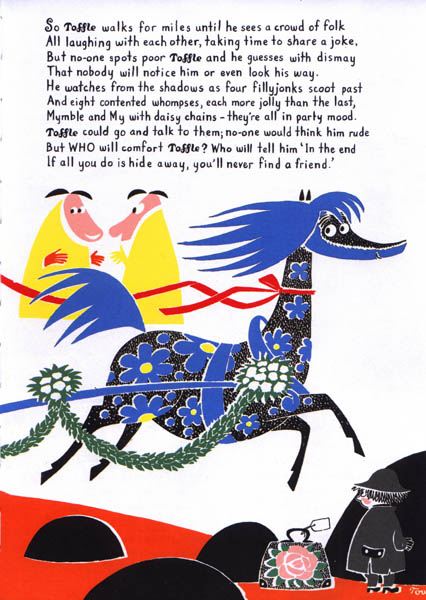 So Toffle walks for miles until he sees a crowd of folk
All laughing with each other, taking time to share a joke,
But no-one spots poor Toffle and he guesses with dismay
That nobody will notice him or even look his way.
He watches from the shadows as four fillyjonks scoot past
And eight contented whompses, each more jolly than the last,
Mymble and My with daisy chains – they're all in party mood.
Toffle could go and talk to them; no-one would think him rude
But WHO will comfort Toffle? Who will tell him 'In the end
If all you do is hide away, you'll never find a friend.'
Tov